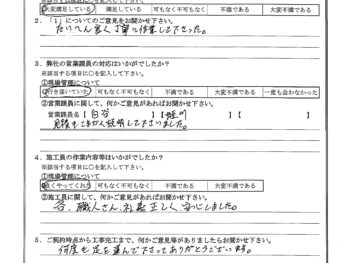 ※該当する項目に○を記入して下さい。
大変満足している 満足している 可もなく不可もなく 不満である 大変不満である
2．「1」についてのご意見をお聞かせ下さい。
たいへん 丁寧に作業して下さった。
3．弊社の営業課員の対応はいかがでしたか？
※該当する項目に○を記入して下さい。
①現場管理について
行き届いていた 可もなく不可もなく 不満である 大変不満である 一度も会わなかった
②営業課員に関して、何かご意見があればお聞かせ下さい。
営業課員名【 白谷 】【 堀川 】【 】
見積もこまかく説明して下さいました。
4．施工員の作業内容等はいかがでしたか？
※該当する項目に○を記入して下さい。
①現場管理について
良くやってくれた 可もなく不可もなく 不満である 大変不満である
②施工員に関して、何かご意見があればお聞かせ下さい。
職人さん、礼義正しく 安心しました。
5．ご契約時点から工事完工まで、何かご意見等がありましたらお聞かせ下さい。
何度も足を運んで下さってありがとうございます。